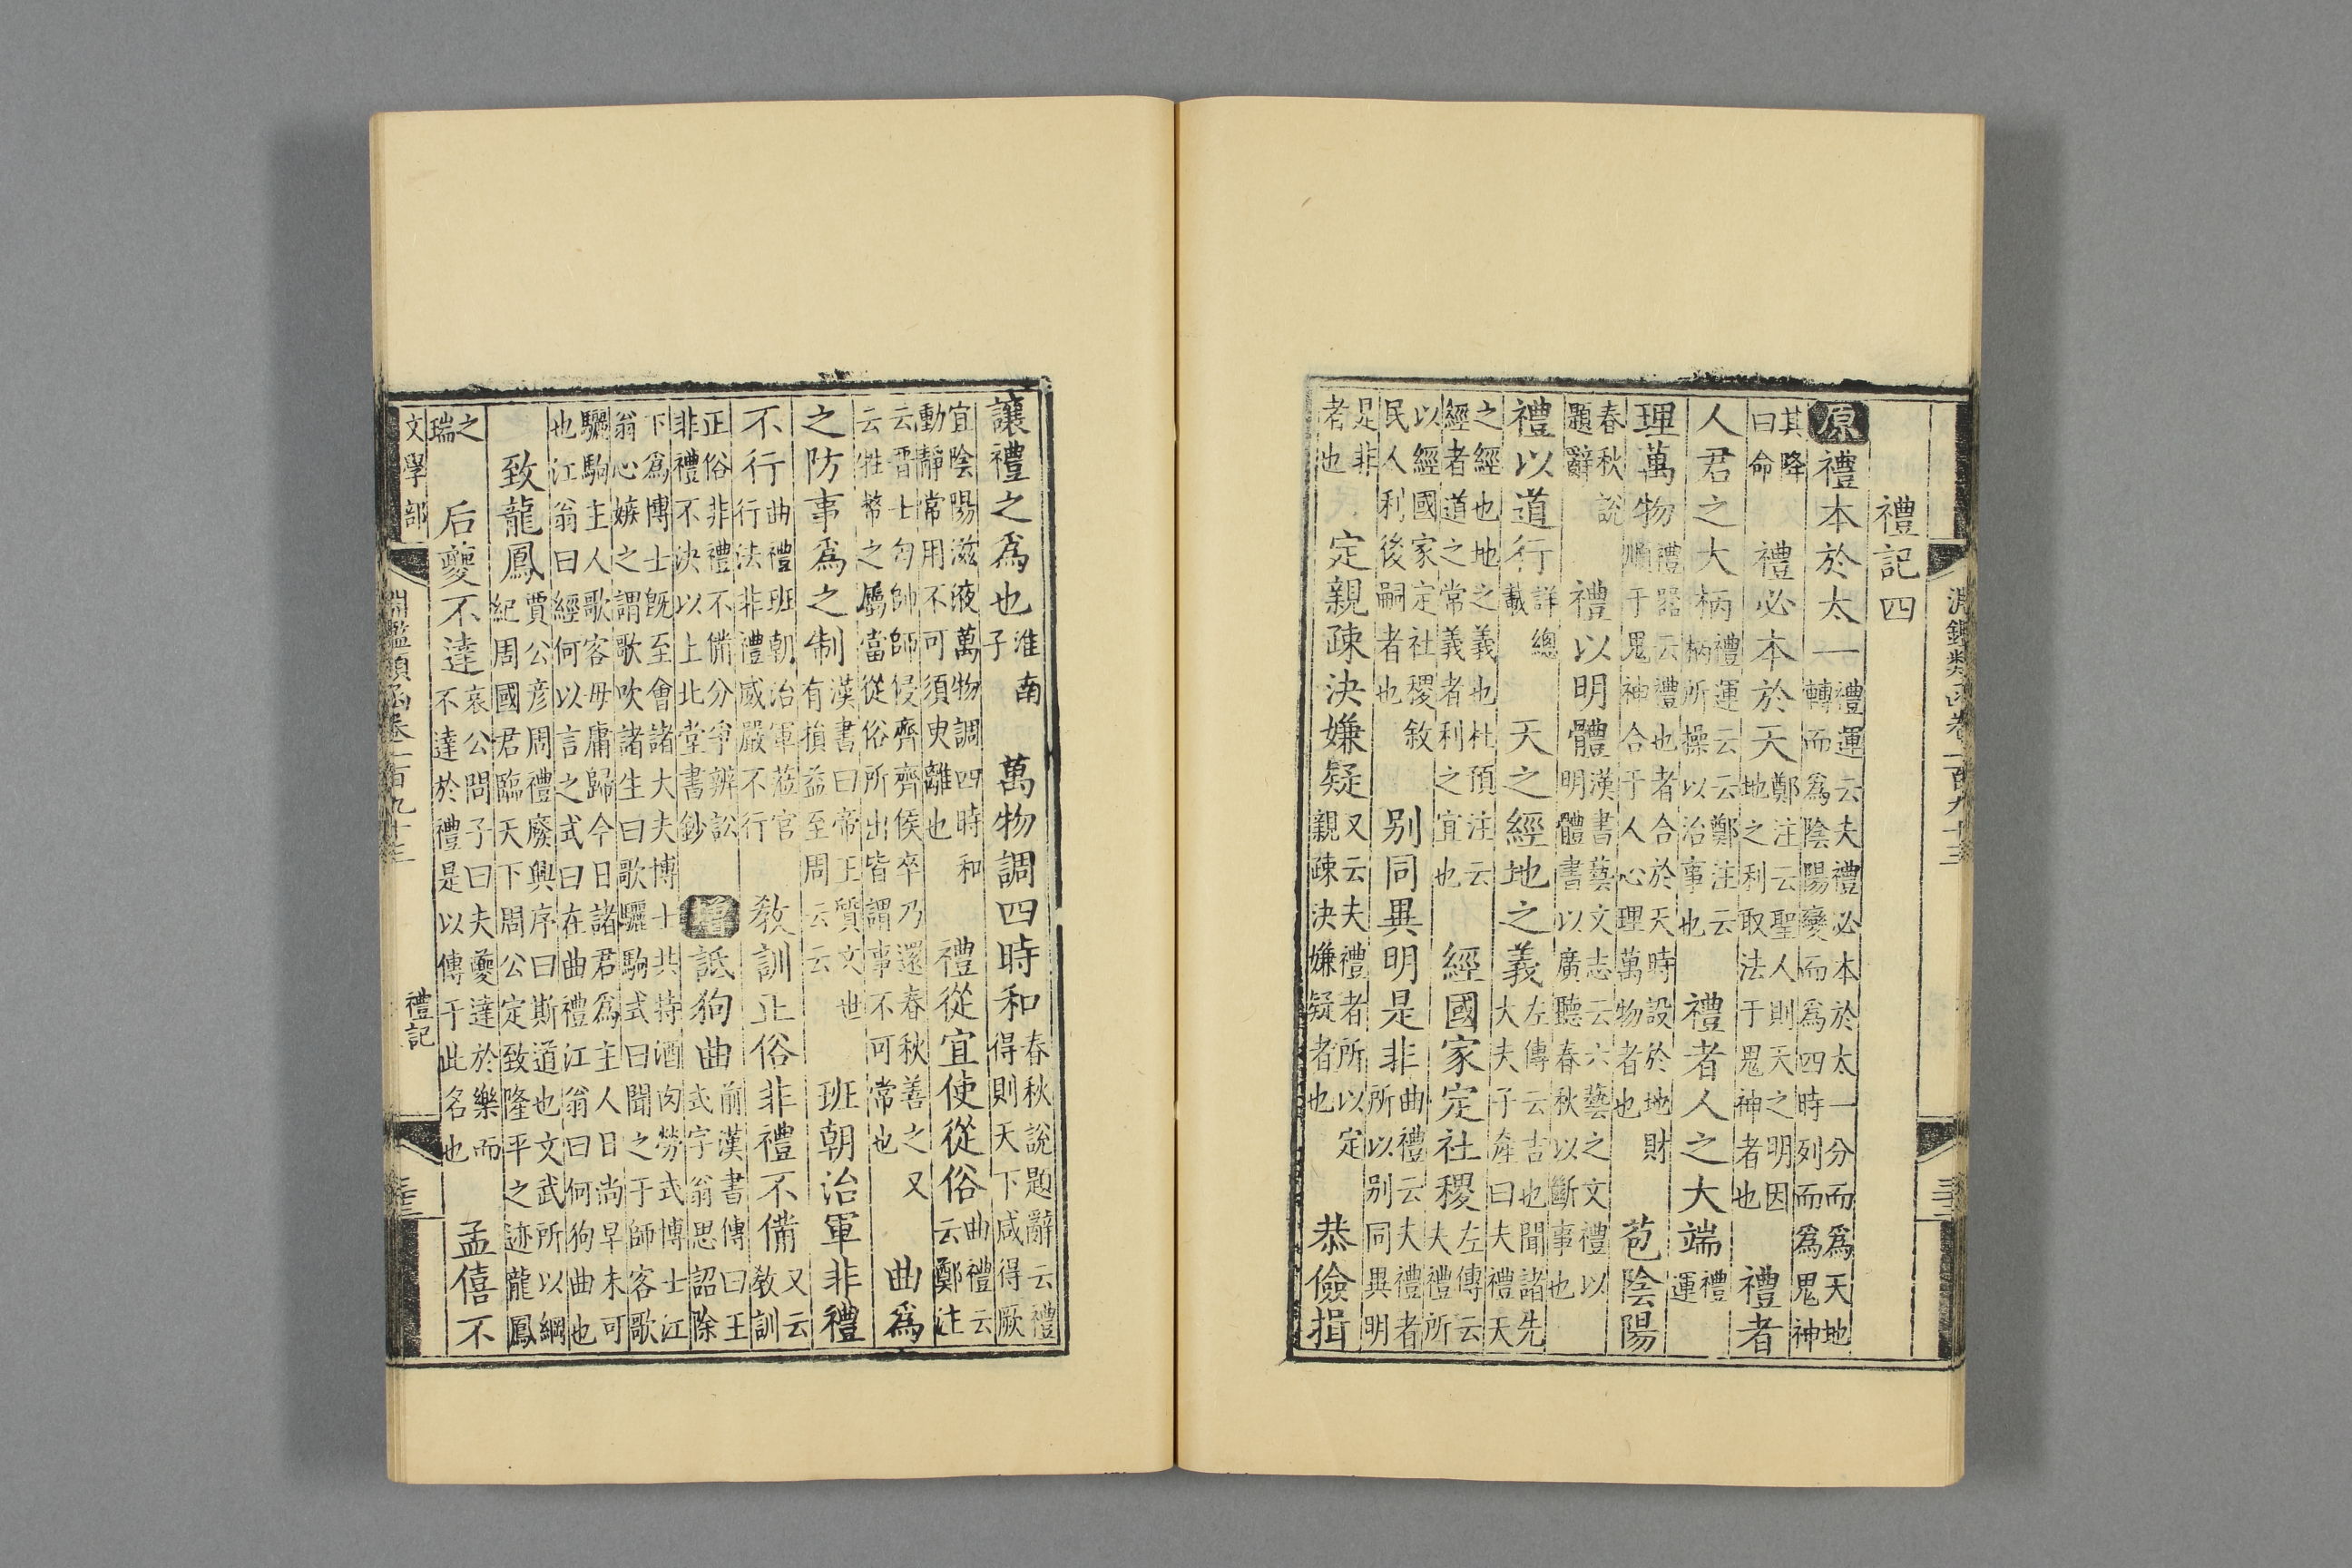 淵鑑類函卷一百九十三
三十三
禮記四
原禮本於太一禮運云夫禮必本於太一分而爲天地轉而爲陰陽變而爲四時列而爲鬼神
其降曰命　禮必本於天鄭注云聖人則天之明因地之利取法于鬼神者也　禮者
人君之大柄禮運云云鄭注云柄所操以治事也　禮者人之大端禮運
理萬物禮器云禮也者合於天時設於地財順于鬼神合于人心理萬物者也　苞陰陽
春秋說題辭　禮以明體漢書藝文志云六藝之文禮以明體書以廣聽春秋以斷事也
禮以道行詳總載　天之經地之義左傳云吉也聞諸先大夫子產曰夫禮天
之經也地之義也杜預注云經者道之常義者利之宜也　經國家定社稷左傳云夫禮所
以經國家定社稷敘民人利後嗣者也　別同異明是非曲禮云夫禮者所以別同異明
是非者也　定親疎決嫌疑又云夫禮者所以定親疎決嫌疑者也　恭儉揖
讓禮之爲也淮南子　萬物調四時和春秋說題辭云禮得則天下咸得厥
宜陰陽滋液萬物調四時和動靜常用不可須臾離也　禮從宜使從俗曲禮云云鄭注
云晋士匄帥師侵齊齊侯卒乃還春秋善之又云牲幣之屬當從俗所出皆謂事不可常也　曲爲
之防事爲之制漢書曰帝王質文世有損益至周云云　班朝治軍非禮
不行曲禮班朝治軍蒞官行法非禮威嚴不行　敎訓正俗非禮不備又云敎訓
正俗非禮不備分爭辨訟非禮不決以上北堂書鈔　增詆狗曲前漢書傳曰王式字翁思詔除
下爲博士既至會諸大夫博士共持酒肉勞式博士江翁心嫉之謂歌吹諸生曰歌驪駒式曰聞之于師客歌
驪駒主人歌客毋庸歸今日諸君爲主人日尚早未可也江翁曰經何以言之式曰在曲禮江翁曰何狗曲也
致龍鳳賈公彦周禮廢興序曰斯道也文武所以綱紀周國君臨天下周公定致隆平之迹龍鳳
之瑞　后夔不達哀公問子曰夫夔達於樂而不達於禮是以傳于此名也　孟僖不
文學部
淵鑑類函卷一百九十三
禮記
三十三